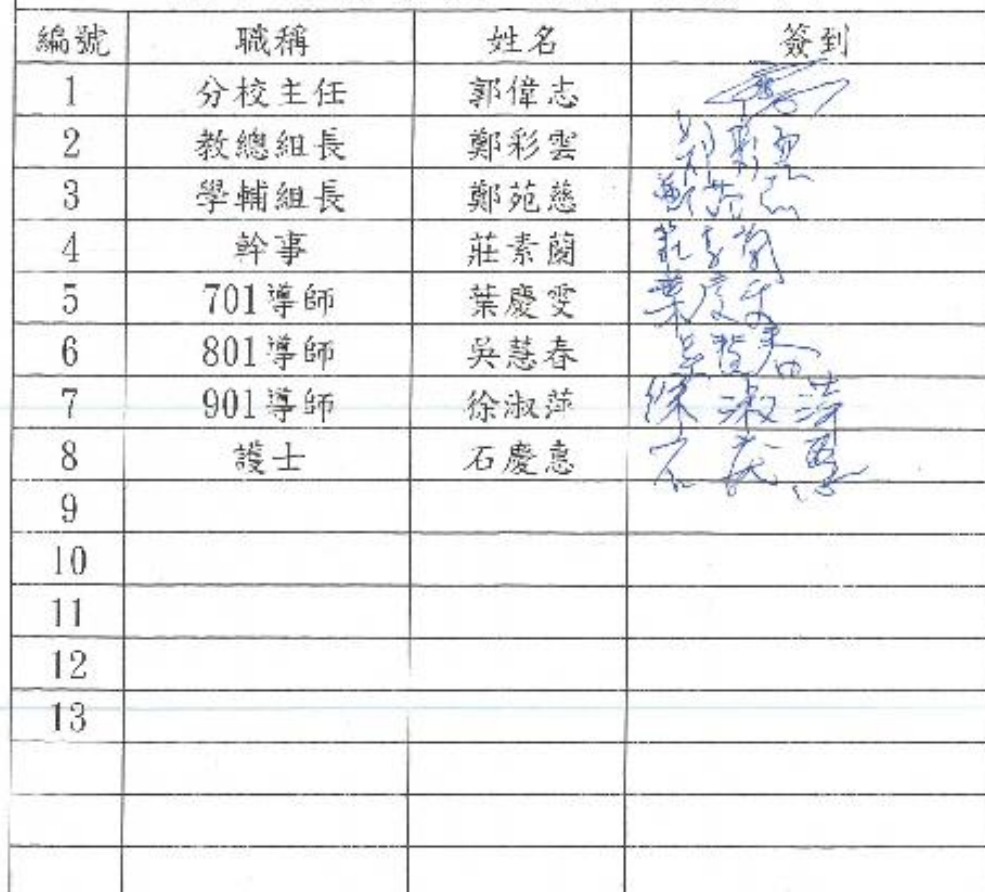 編號 職稱 姓名 簽到
1 分校主任 郭偉志
2 教總組長 鄭彩雲
3 學輔組長 鄭苑慈 鄭苑慈
4 幹事 莊素蘭 莊素蘭
5 701導師 葉慶雯 葉慶雯
6 801導師 吳慧春 吳慧春
7 901導師 徐淑萍 徐淑萍
8 護士 石慶惠 石慶惠
9
10
11
12
13